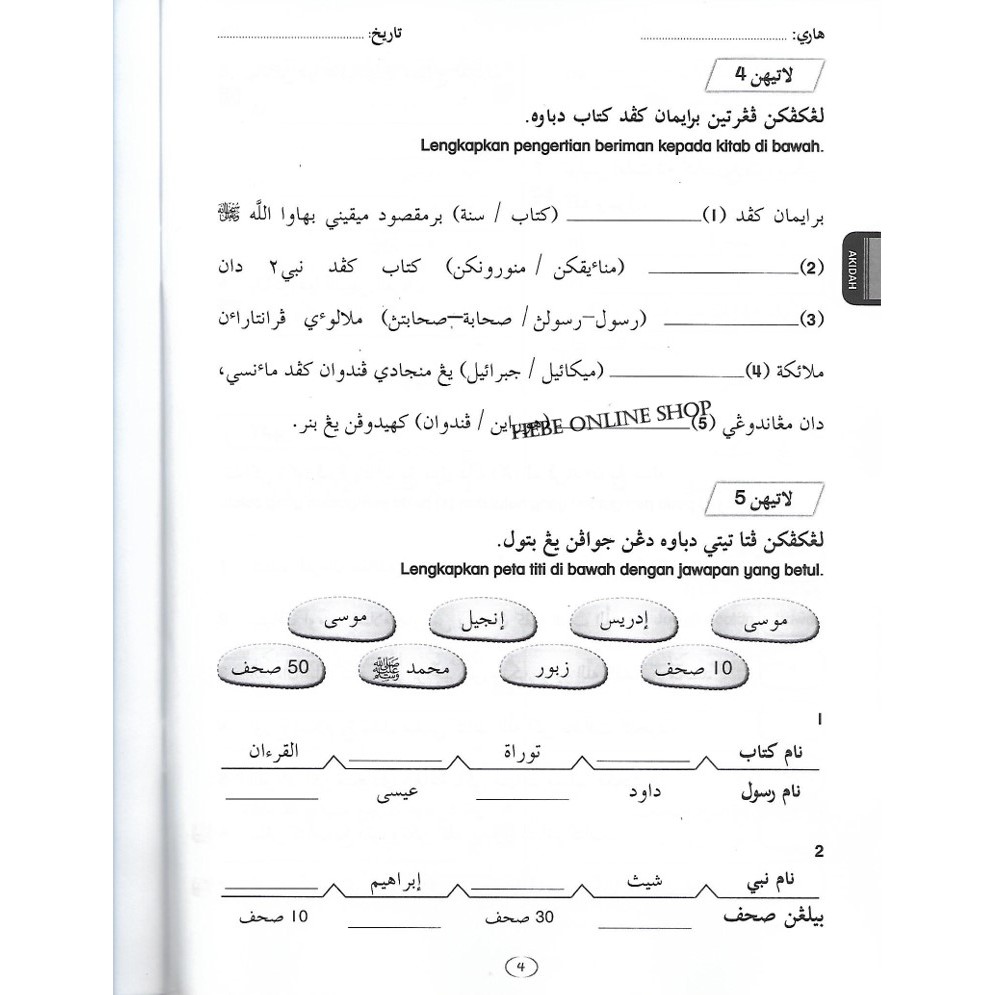 هاري: ........................ تاريخ: ........................
لاتيهن 4
لڠكڤكن ڤڠرتين برايمان كڤد كتاب دباوه.
Lengkapkan pengertian beriman kepada kitab di bawah.
برايمان كڤد (1) __________ (كتاب / سنة) برمقصود ميقيني بهاوا اللّه ﷻ
(2) __________ (مناءيقكن / منورونكن) كتاب كڤد نبي٢ دان
(3) __________ (رسول-رسولڽ / صحابة-صحابتڽ) ملالوءي ڤرانتاراءن
ملائكة (4) __________ (ميكائيل / جبرائيل) يڠ منجادي ڤندوان كڤد ماءنسي،
دان مڠاندوڠي (5) __________ / ڤندوان) كهيدوڤن يڠ بنر.
HEBE ONLINE SHOP
AKIDAH
لاتيهن 5
لڠكڤكن ڤتا تيتي دباوه دڠن جواڤن يڠ بتول.
Lengkapkan peta titi di bawah dengan jawapan yang betul.
موسى إدريس إنجيل موسى
10 صحف زبور محمد ﷺ 50 صحف
1
نام كتاب __________ توراة __________ القرءان
نام رسول داود __________ عيسى __________
2
نام نبي شيث __________ إبراهيم __________
بيلڠن صحف __________ 30 صحف __________ 10 صحف
4